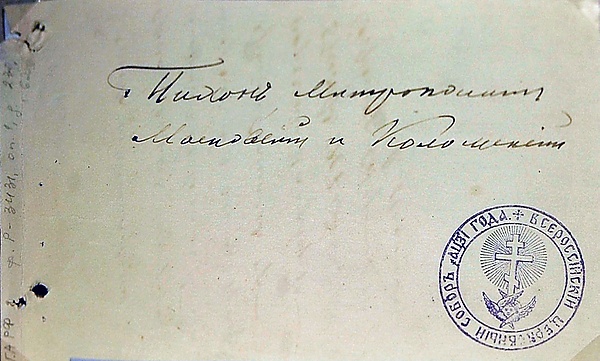 Тихонъ Митрополитъ
Московскій и Коломенскій
ВСЕРОССІЙСКІЙ ЦЕРКОВНЫЙ СОБОРЪ ҂АЦЗІ ГОДА.
ГАРФ ф. Р-3431, оп. 1, д.